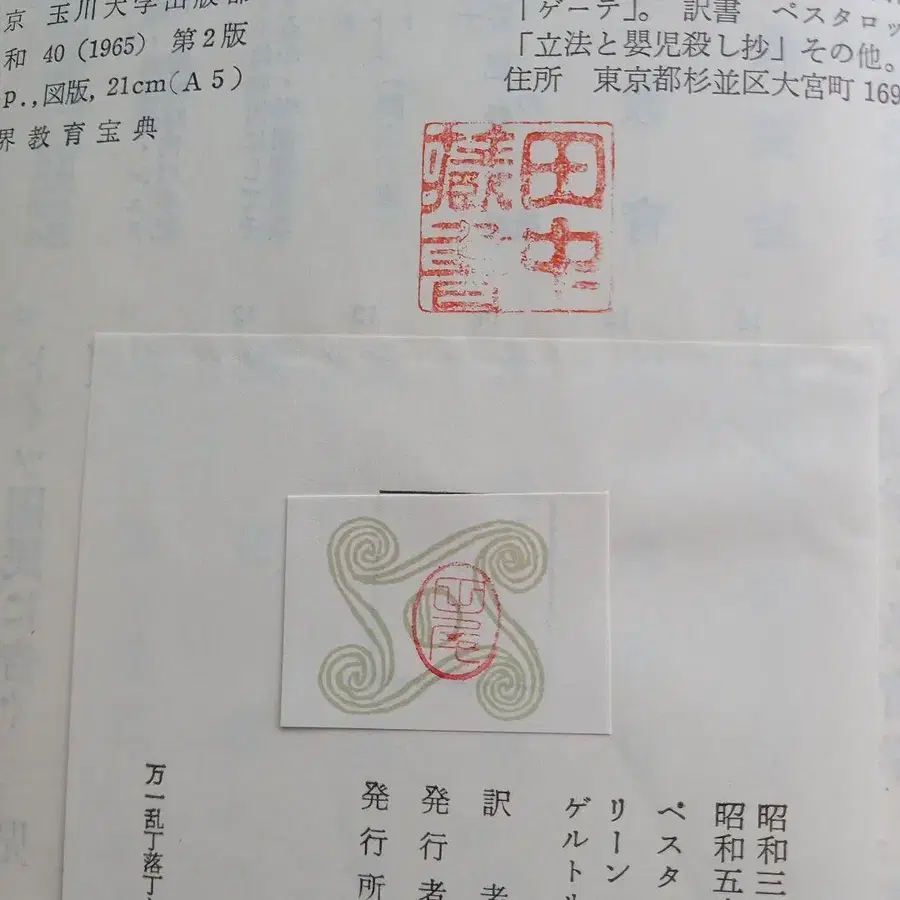 京 玉川大学出版部
和 40 (1965) 第2版
p., 図版, 21cm(A5)
界教育宝典
「ゲーテ」。 訳書 ペスタロッ
「立法と嬰児殺し抄」その他。
住所 東京都杉並区大宮町 169
田中
藏書
昭和三
昭和五
ペスタ
リーン
ゲルトル
訳者
発行者
発行所
万一乱丁落丁